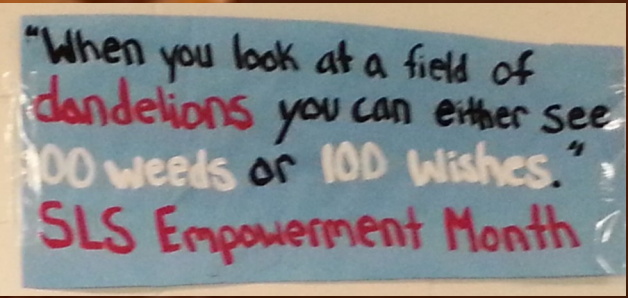 "When you look at a field of
dandelions you can either see
100 weeds or 100 wishes."
SLS Empowerment Month